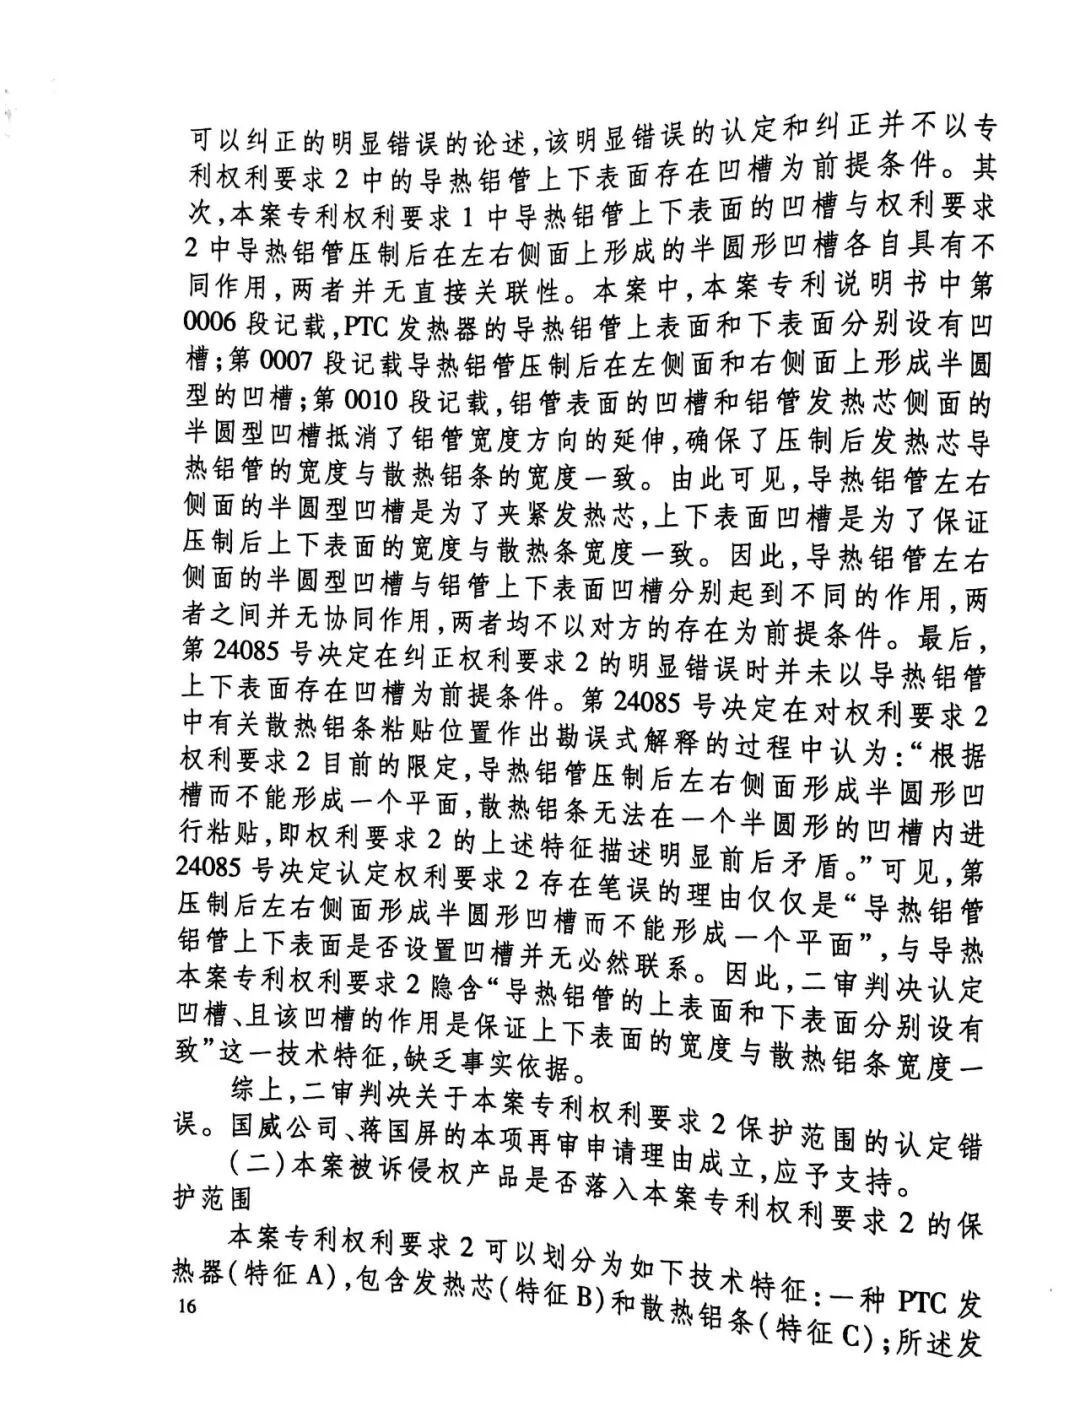 可以纠正的明显错误的论述,该明显错误的认定和纠正并不以专
利权利要求2中的导热铝管上下表面存在凹槽为前提条件。其
次,本案专利权利要求1中导热铝管上下表面的凹槽与权利要求
2中导热铝管压制后在左右侧面上形成的半圆形凹槽各自具有不
同作用,两者并无直接关联性。本案中,本案专利说明书中第
0006段记载,PTC发热器的导热铝管上表面和下表面分别设有凹
槽;第0007段记载导热铝管压制后在左侧面和右侧面上形成半圆
型的凹槽;第0010段记载,铝管表面的凹槽和铝管发热芯侧面的
半圆型凹槽抵消了铝管宽度方向的延伸,确保了压制后发热芯导
热铝管的宽度与散热铝条的宽度一致。由此可见,导热铝管左右
侧面的半圆型凹槽是为了夹紧发热芯,上下表面凹槽是为了保证
压制后上下表面的宽度与散热条宽度一致。因此,导热铝管左右
侧面的半圆型凹槽与铝管上下表面凹槽分别起到不同的作用,两
者之间并无协同作用,两者均不以对方的存在为前提条件。最后,
第24085号决定在纠正权利要求2的明显错误时并未以导热铝管
上下表面存在凹槽为前提条件。第24085号决定在对权利要求2
中有关散热铝条粘贴位置作出勘误式解释的过程中认为:“根据
权利要求2目前的限定,导热铝管压制后左右侧面形成半圆形凹
槽而不能形成一个平面,散热铝条无法在一个半圆形的凹槽内进
行粘贴,即权利要求2的上述特征描述明显前后矛盾。”可见,第
24085号决定认定权利要求2存在笔误的理由仅仅是“导热铝管
压制后左右侧面形成半圆形凹槽而不能形成一个平面”,与导热
铝管上下表面是否设置凹槽并无必然联系。因此,二审判决认定
本案专利权利要求2隐含“导热铝管的上表面和下表面分别设有
凹槽、且该凹槽的作用是保证上下表面的宽度与散热铝条宽度一
致”这一技术特征,缺乏事实依据。
综上,二审判决关于本案专利权利要求2保护范围的认定错
误。国威公司、蒋国屏的本项再审申请理由成立,应予支持。
(二)本案被诉侵权产品是否落入本案专利权利要求2的保
护范围
本案专利权利要求2可以划分为如下技术特征:一种PTC发
热器(特征A),包含发热芯(特征B)和散热铝条(特征C);所述发
16